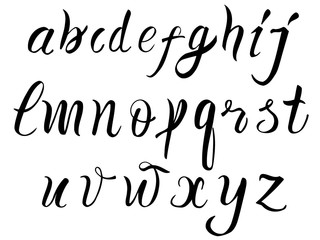 abcdefghij
lmnopqrst
uvwxyz